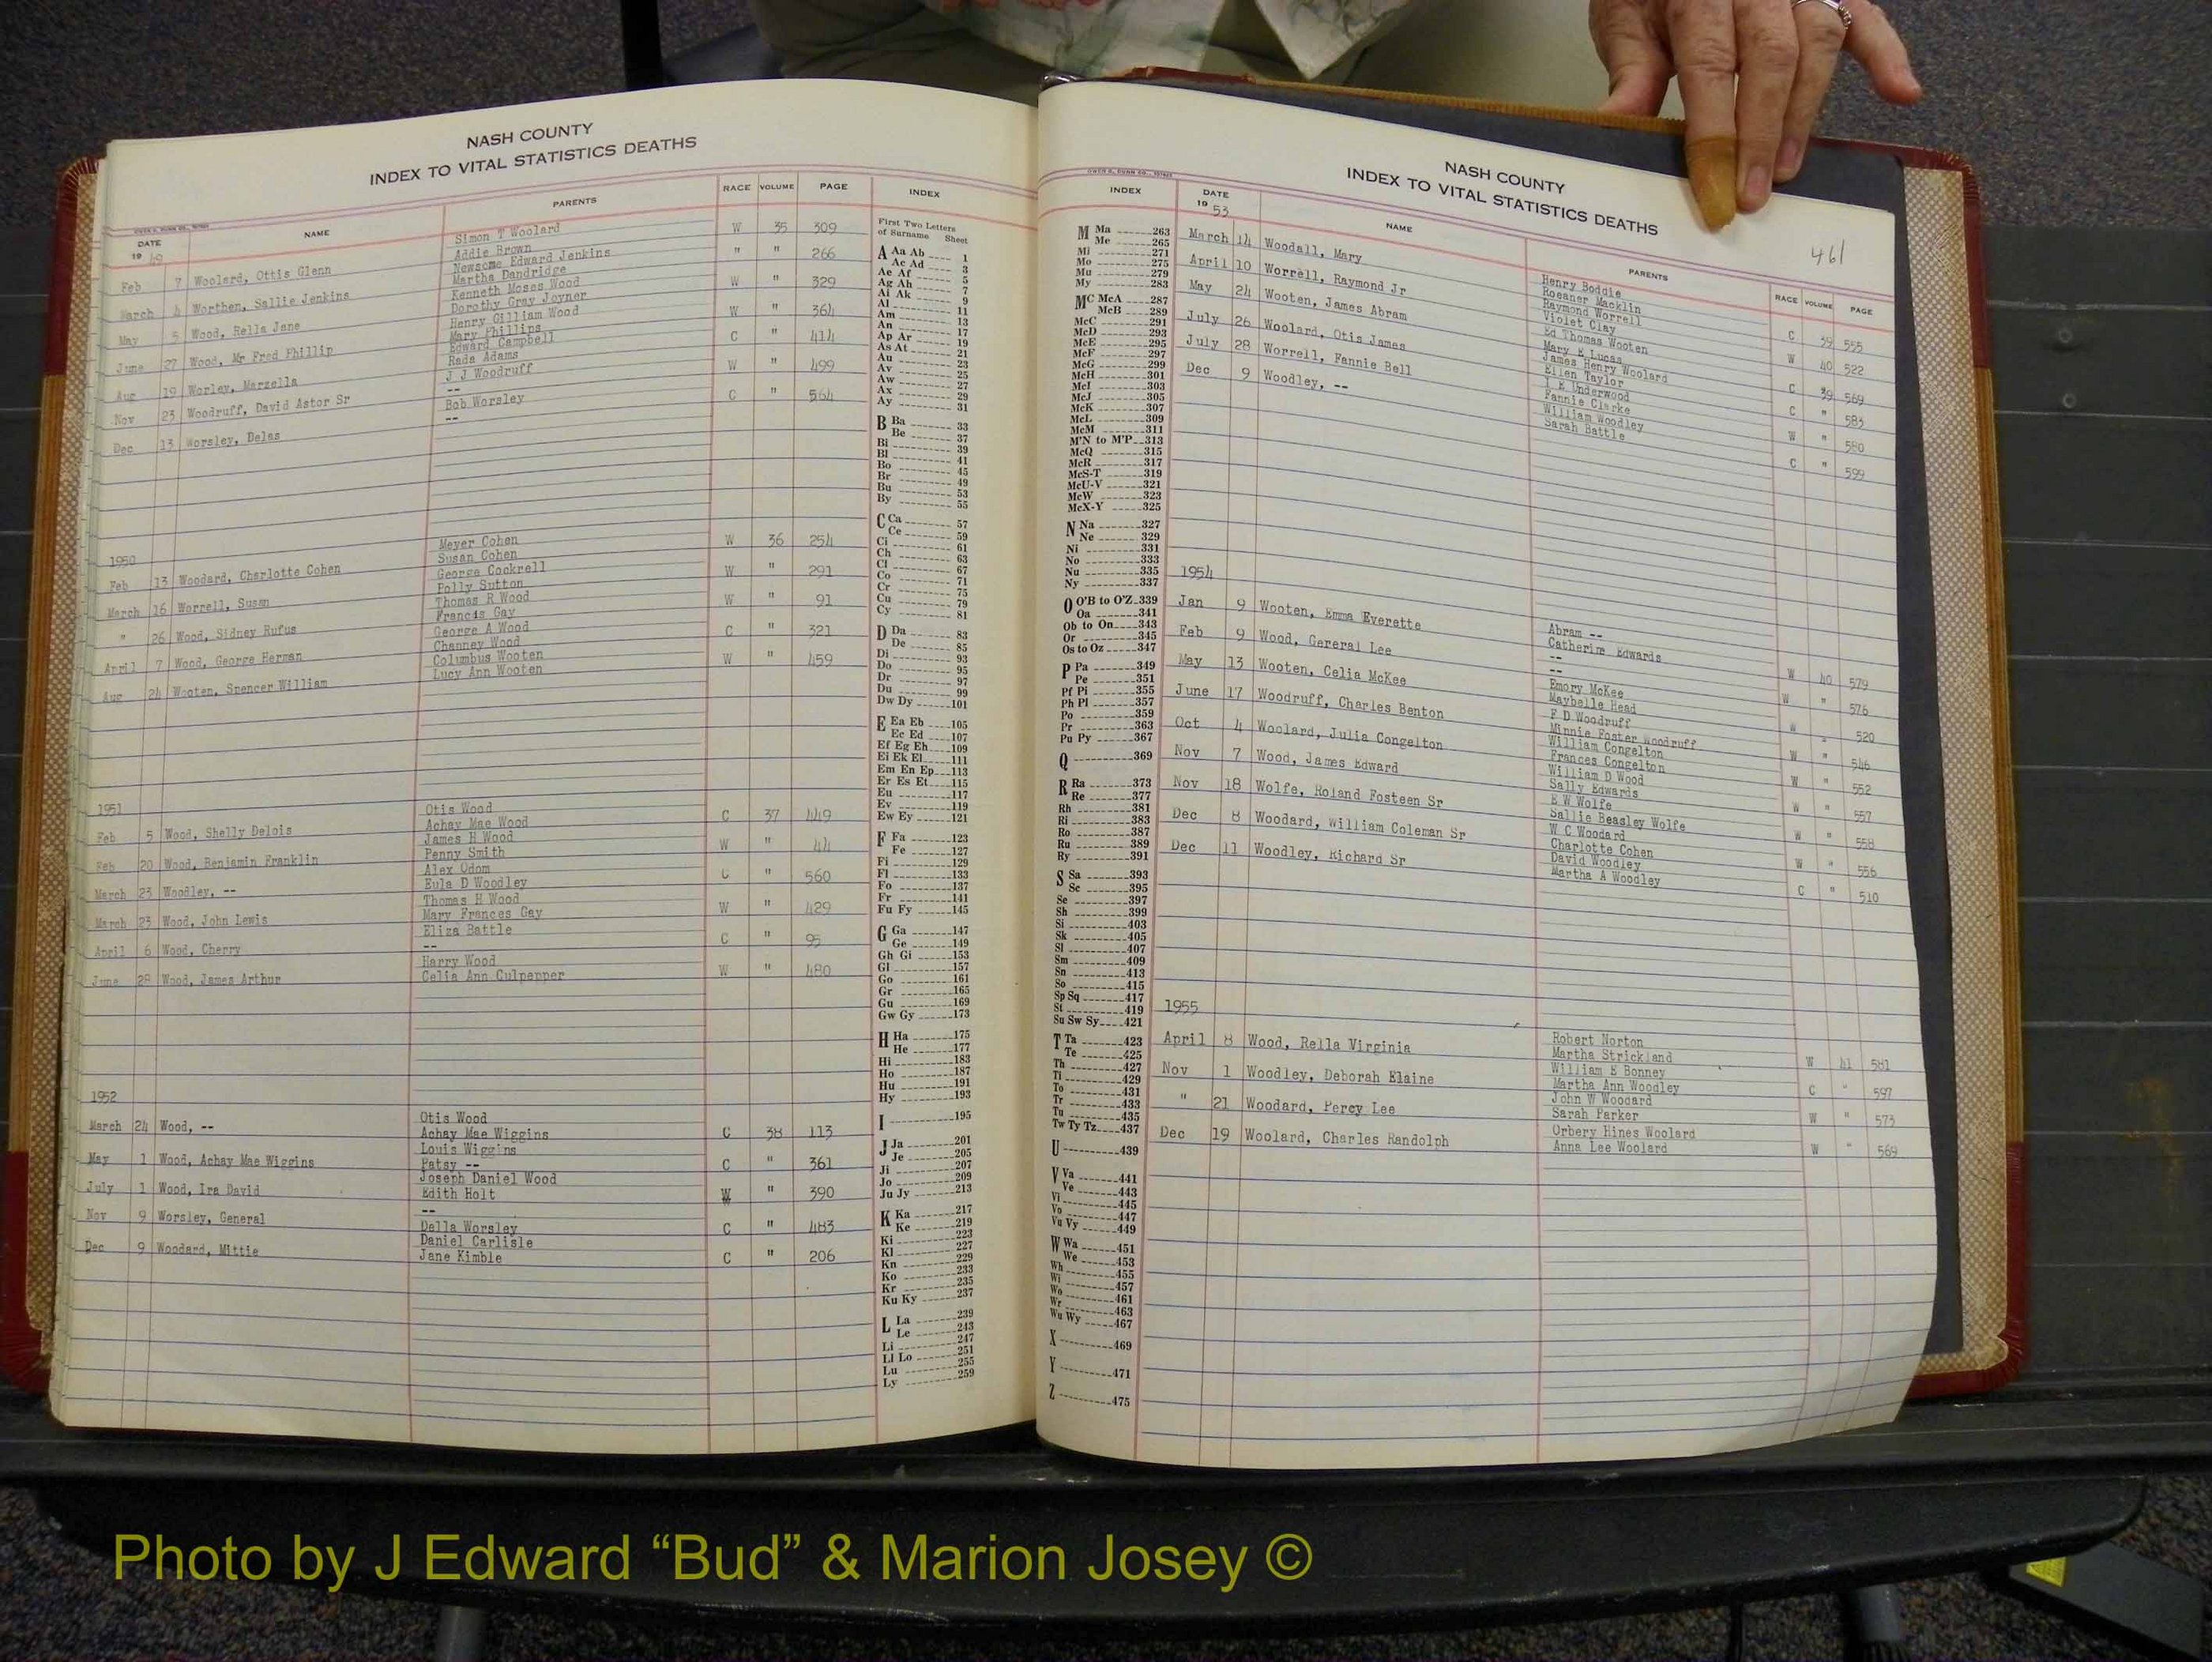 NASH COUNTY
INDEX TO VITAL STATISTICS DEATHS
DATE NAME PARENTS RACE VOLUME PAGE INDEX
19 49
Feb 7 Woolard, Ottis Glenn Simon T Woolard W 35 309
Addie Brown
March 4 Worthen, Sallie Jenkins Newsome Edward Jenkins " " 266
Martha Dandridge
May 5 Wood, Rella Jane Kenneth Moses Wood W " 329
Dorothy Gray Joyner
June 27 Wood, Mr Fred Phillip Henry Gilliam Wood W " 364
Mary Phillips
Aug 19 Worley, Marzella Edward Campbell C " 414
Reda Adams
Nov 23 Woodruff, David Astor Sr J J Woodruff W " 499
--
Dec 13 Worsley, Delas Bob Worsley C " 564
--
1950
Feb 13 Woodard, Charlotte Cohen Meyer Cohen W 36 254
Susan Cohen
March 16 Worrell, Susan George Cockrell W " 291
Polly Sutton
" 26 Wood, Sidney Rufus Thomas R Wood W " 91
Francis Gay
April 7 Wood, George Herman George A Wood C " 321
Channey Wood
Aug 24 Wooten, Spencer William Columbus Wooten W " 459
Lucy Ann Wooten
1951
Feb 5 Wood, Shelly Delois Otis Wood C 37 449
Achay Mae Wood
Feb 20 Wood, Benjamin Franklin James H Wood W " 44
Penny Smith
March 23 Woodley, -- Alex Odom C " 560
Eula D Woodley
March 23 Wood, John Lewis Thomas H Wood W " 429
Mary Frances Gay
April 6 Wood, Cherry Eliza Battle C " 95
--
June 28 Wood, James Arthur Harry Wood W " 480
Celia Ann Culpepper
1952
March 24 Wood, -- Otis Wood C 38 113
Achay Mae Wiggins
May 1 Wood, Achay Mae Wiggins Louis Wiggins C " 361
Patsy --
July 1 Wood, Ira David Joseph Daniel Wood W " 390
Edith Holt
Nov 9 Worsley, General -- C " 483
Della Worsley
Dec 9 Woodard, Mittie Daniel Carlisle C " 206
Jane Kimble
First Two Letters
of Surname Sheet
A Aa Ab 1
Ac Ad 3
Ae Af 5
Ag Ah 7
Ai Ak 9
Al 11
Am 13
An 17
Ap Ar 19
As At 21
Au 23
Av 25
Aw 27
Ax 29
Ay 31
B Ba 33
Be 37
Bi 39
Bl 41
Bo 45
Br 49
Bu 53
By 55
C Ca 57
Ce 59
Ci 61
Ch 63
Cl 67
Co 71
Cr 75
Cu 79
Cy 81
D Da 83
De 85
Di 93
Do 95
Dr 97
Du 99
Dw Dy 101
E Ea Eb 105
Ec Ed 107
Ef Eg Eh 109
Ei Ek El 111
Em En Ep 113
Er Es Et 115
Eu 117
Ev 119
Ew Ey 121
F Fa 123
Fe 127
Fi 129
Fl 133
Fo 137
Fr 141
Fu Fy 145
G Ga 147
Ge 149
Gh Gi 153
Gl 157
Go 161
Gr 165
Gu 169
Gw Gy 173
H Ha 175
He 177
Hi 183
Ho 187
Hu 191
Hy 193
I 195
J Ja 201
Je 205
Ji 207
Jo 209
Ju Jy 213
K Ka 217
Ke 219
Ki 223
Kl 227
Kn 229
Ko 233
Kr 235
Ku Ky 237
L La 239
Le 243
Li 247
Ll Lo 251
Lu 255
Ly 259
NASH COUNTY
INDEX TO VITAL STATISTICS DEATHS
461
INDEX DATE NAME PARENTS RACE VOLUME PAGE
M Ma 263
Me 265
Mi 271
Mo 275
Mu 279
My 283
MC McA 287
McB 289
McC 291
McD 293
McE 295
McF 297
McG 299
McH 301
McI 303
McJ 305
McK 307
McL 309
McM 311
M'N to M'P 313
McQ 315
McR 317
McS-T 319
McU-V 321
McW 323
McX-Y 325
N Na 327
Ne 329
Ni 331
No 333
Nu 335
Ny 337
O O'B to O'Z 339
Oa 341
Ob to On 343
Or 345
Os to Oz 347
P Pa 349
Pe 351
Pf Pi 355
Ph Pl 357
Po 359
Pr 363
Pu Py 367
Q 369
R Ra 373
Re 377
Rh 381
Ri 383
Ro 387
Ru 389
Ry 391
S Sa 393
Sc 395
Se 397
Sh 399
Si 403
Sk 405
Sl 407
Sm 409
Sn 413
So 415
Sp Sq 417
St 419
Su Sw Sy 421
T Ta 423
Te 425
Th 427
Ti 429
To 431
Tr 433
Tu 435
Tw Ty Tz 437
U 439
V Va 441
Ve 443
Vi 445
Vo 447
Vu Vy 449
W Wa 451
We 453
Wh 455
Wi 457
Wo 461
Wr 463
Wu Wy 467
X 469
Y 471
Z 475
19 53
March 14 Woodall, Mary Henry Boddie C 39 555
Roeaner Macklin
April 10 Worrell, Raymond Jr Raymond Worrell W 40 522
Violet Clay
May 24 Wooten, James Abram Ed Thomas Wooten C 39 569
Mary E Lucas
July 26 Woolard, Otis James James Henry Woolard C " 583
Ellen Taylor
July 28 Worrell, Fannie Bell T E Underwood W " 580
Fannie Clarke
Dec 9 Woodley, -- William Woodley C " 599
Sarah Battle
1954
Jan 9 Wooten, Emma Everette Abram -- W 40 579
Catherine Edwards
Feb 9 Wood, General Lee -- W " 576
--
May 13 Wooten, Celia McKee Emory McKee W " 520
Maybelle Head
June 17 Woodruff, Charles Benton F D Woodruff W " 546
Minnie Foster Woodruff
Oct 4 Woolard, Julia Congelton William Congelton W " 552
Frances Congelton
Nov 7 Wood, James Edward William D Wood W " 557
Sally Edwards
Nov 18 Wolfe, Roland Fosteen Sr E W Wolfe W " 558
Sallie Beasley Wolfe
Dec 8 Woodard, William Coleman Sr W C Woodard W " 556
Charlotte Cohen
Dec 11 Woodley, Richard Sr David Woodley C " 510
Martha A Woodley
1955
April 8 Wood, Rella Virginia Robert Norton W 41 581
Martha Strickland
Nov 1 Woodley, Deborah Elaine William E Bonney C " 597
Martha Ann Woodley
" 21 Woodard, Percy Lee John W Woodard W " 573
Sarah Parker
Dec 19 Woolard, Charles Randolph Orbery Hines Woolard W " 569
Anna Lee Woolard
Photo by J Edward “Bud” & Marion Josey ©